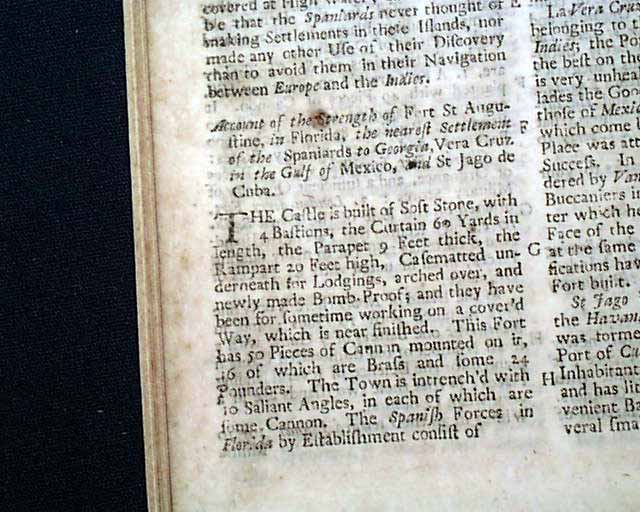 covered at High Water,
be that the Spaniards never thought of
making Settlements in these Islands, nor
made any other Use of their Discovery
than to avoid them in their Navigation
between Europe and the Indies.
Account of the Strength of Fort St Augu-
stine, in Florida, the nearest Settlement
of the Spaniards to Georgia, Vera Cruz
in the Gulf of Mexico, and St Jago de
Cuba.
THE Castle is built of Soft Stone, with
4 Bastions, the Curtain 60 Yards in
length, the Parapet 9 Feet thick, the
Rampart 20 Feet high, Casematted un-
derneath for Lodgings, arched over, and
newly made Bomb-Proof; and they have
been for sometime working on a cover'd
Way, which is near finished. This Fort
has 50 Pieces of Cannon mounted on it,
16 of which are Brass and some 24
Pounders. The Town is intrench'd with
10 Saliant Angles, in each of which are
some Cannon. The Spanish Forces in
Florida by Establishment consist of
E
F
G
H
La Vera Cruz
belonging to
Indies; the Po
the best on the
is very unhea
lades the Goo
those of Mexi
which come
Place was att
Success. In
dered by Van
Buccaniers in
ter which h
Face of the
at the same
fications hav
Fort built.
St Jago
the Havan
was forme
Port of Cu
Inhabitant
and has li
venient Ba
veral sma